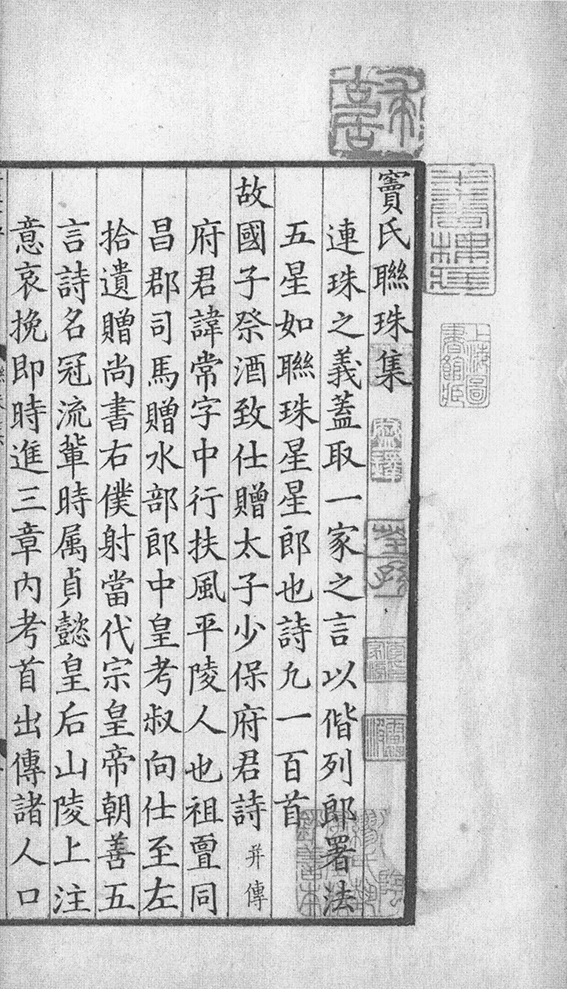 竇氏聯珠集
連珠之義蓋取一家之言以偕列郎署法
五星如聯珠星星郎也詩凡一百首
故國子祭酒致仕贈太子少保府君詩 并傳
府君諱常字中行扶風平陵人也祖亶同
昌郡司馬贈水部郎中皇考叔向仕至左
拾遺贈尚書右僕射當代宗皇帝朝善五
言詩名冠流輩時属貞懿皇后山陵上注
意哀挽即時進三章內考首出傳諸人口
上海圖
書館藏